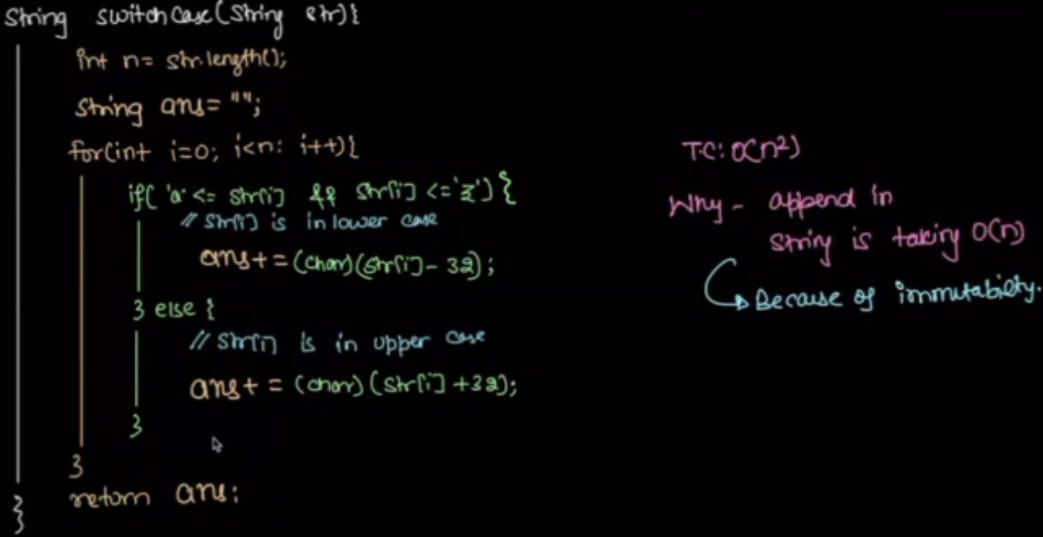 String switchCase(String str){
int n= str.length();
String ans= "";
for(int i=0; i<n: i++){
if( 'a' <= str[i] && str[i] <='z') {
// str[i] is in lower case
ans+ = (char)(str[i]- 32);
} else {
// str[i] is in upper case
ans+ = (char) (str[i] +32);
}
}
return ans:
}
T.C: O(n²)
Why - append in
string is taking O(n)
↳ Because of immutability.